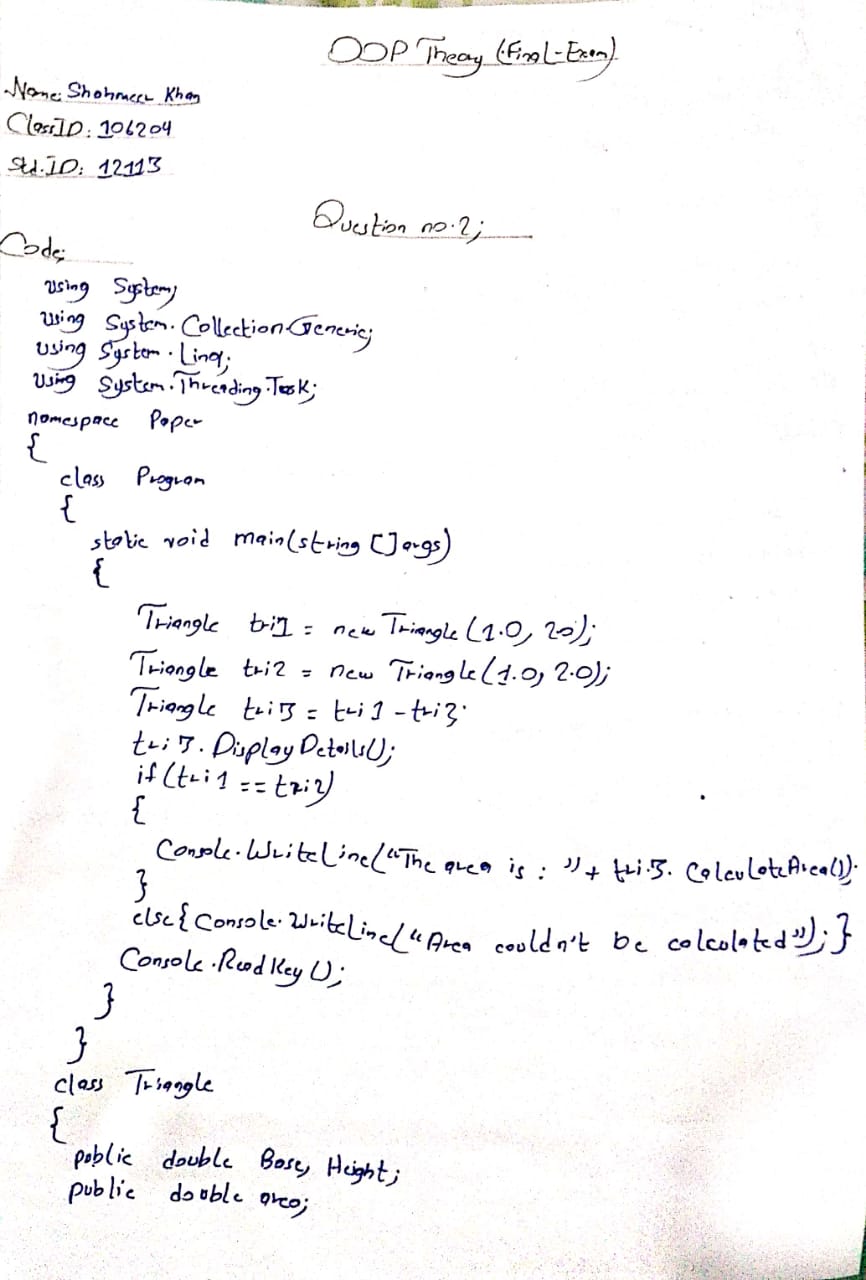 OOP Theory (Final-Exam)
Name: Shahmeer Khan
ClassID: 106204
Std.ID: 12113
Question no.2;
Code;
using System;
using System.Collection.Generic;
using System.Linq;
using System.Threading.Task;
namespace Paper
{
class Program
{
static void main(string []args)
{
Triangle tri1 = new Triangle(1.0, 20);
Triangle tri2 = new Triangle(1.0, 2.0);
Triangle tri3 = tri1 - tri2;
tri3.DisplayDetails();
if(tri1 == tri2)
{
Console.WriteLine("The area is : " + tri3.CalculateArea());
}
else{ Console.WriteLine("Area couldn't be calculated"); }
Console.ReadKey();
}
}
class Triangle
{
public double Base, Height;
public double area;